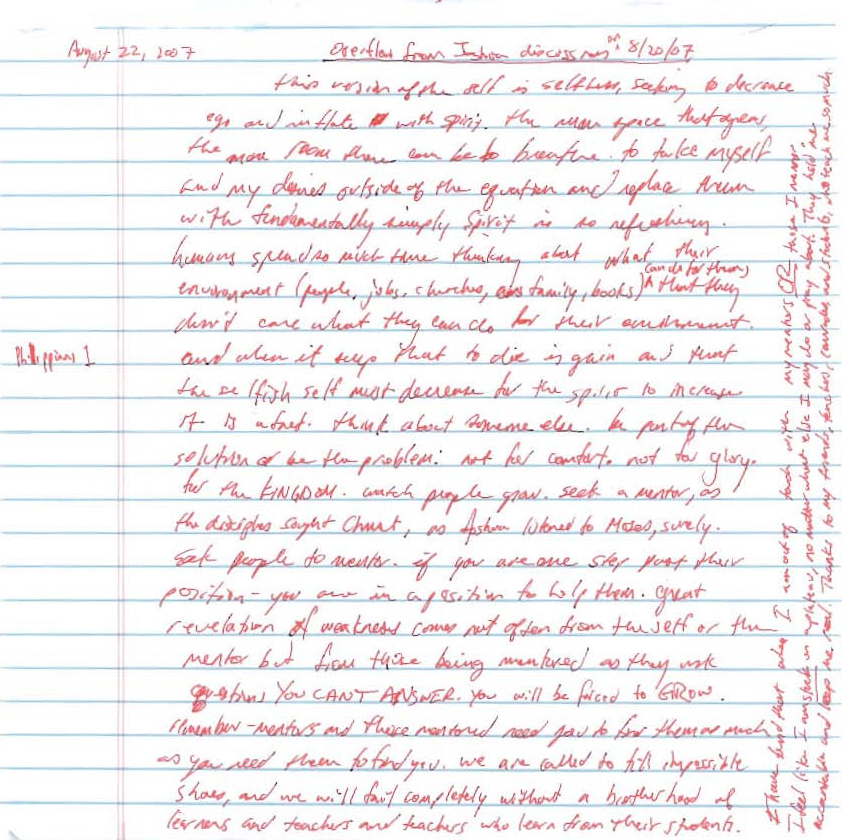 August 22, 2007
Overflow from Joshua discussions on: 8/20/07
this version of the self is selfless, seeking to decrease
ego and inflate with spirit. the more space that opens,
the more room there can be to breathe. to take myself
and my desires outside of the equation and replace them
with fundamentally simply Spirit is so refreshing.
humans spend so much time thinking about what their
environment (people, jobs, churches, family, books) ^ can do for them, that they
don't care what they can do for their environment.
Philippians 1
and when it says that to die is gain and that
the selfish self must decrease for the spirit to increase
it is a fact. think about someone else. be part of the
solution or be the problem: not for comfort. not for glory.
for the KINGDOM. watch people grow. seek a mentor, as
the disciples sought Christ, as Joshua listened to Moses, surely.
Seek people to mentor. if you are one step past their
position - you are in a position to help them. great
revelation of weakness comes not often from the self or the
mentor but from those being mentored as they ask
questions YOU CANT ANSWER. You will be forced to GROW.
remember - mentors and those mentored need you to find them as much
as you need them to find you. we are called to fill impossible
shoes, and we will fail completely without a brotherhood of
learners and teachers and teachers who learn from their students.
I have find that when I am out of touch with my mentors OR those I mentor
I feel like I am stuck on a plateau, no matter what else I may do or pray about. They hold me
accountable and keep me real. Thanks to my friends, teachers, comrades and students, who teach me so much.